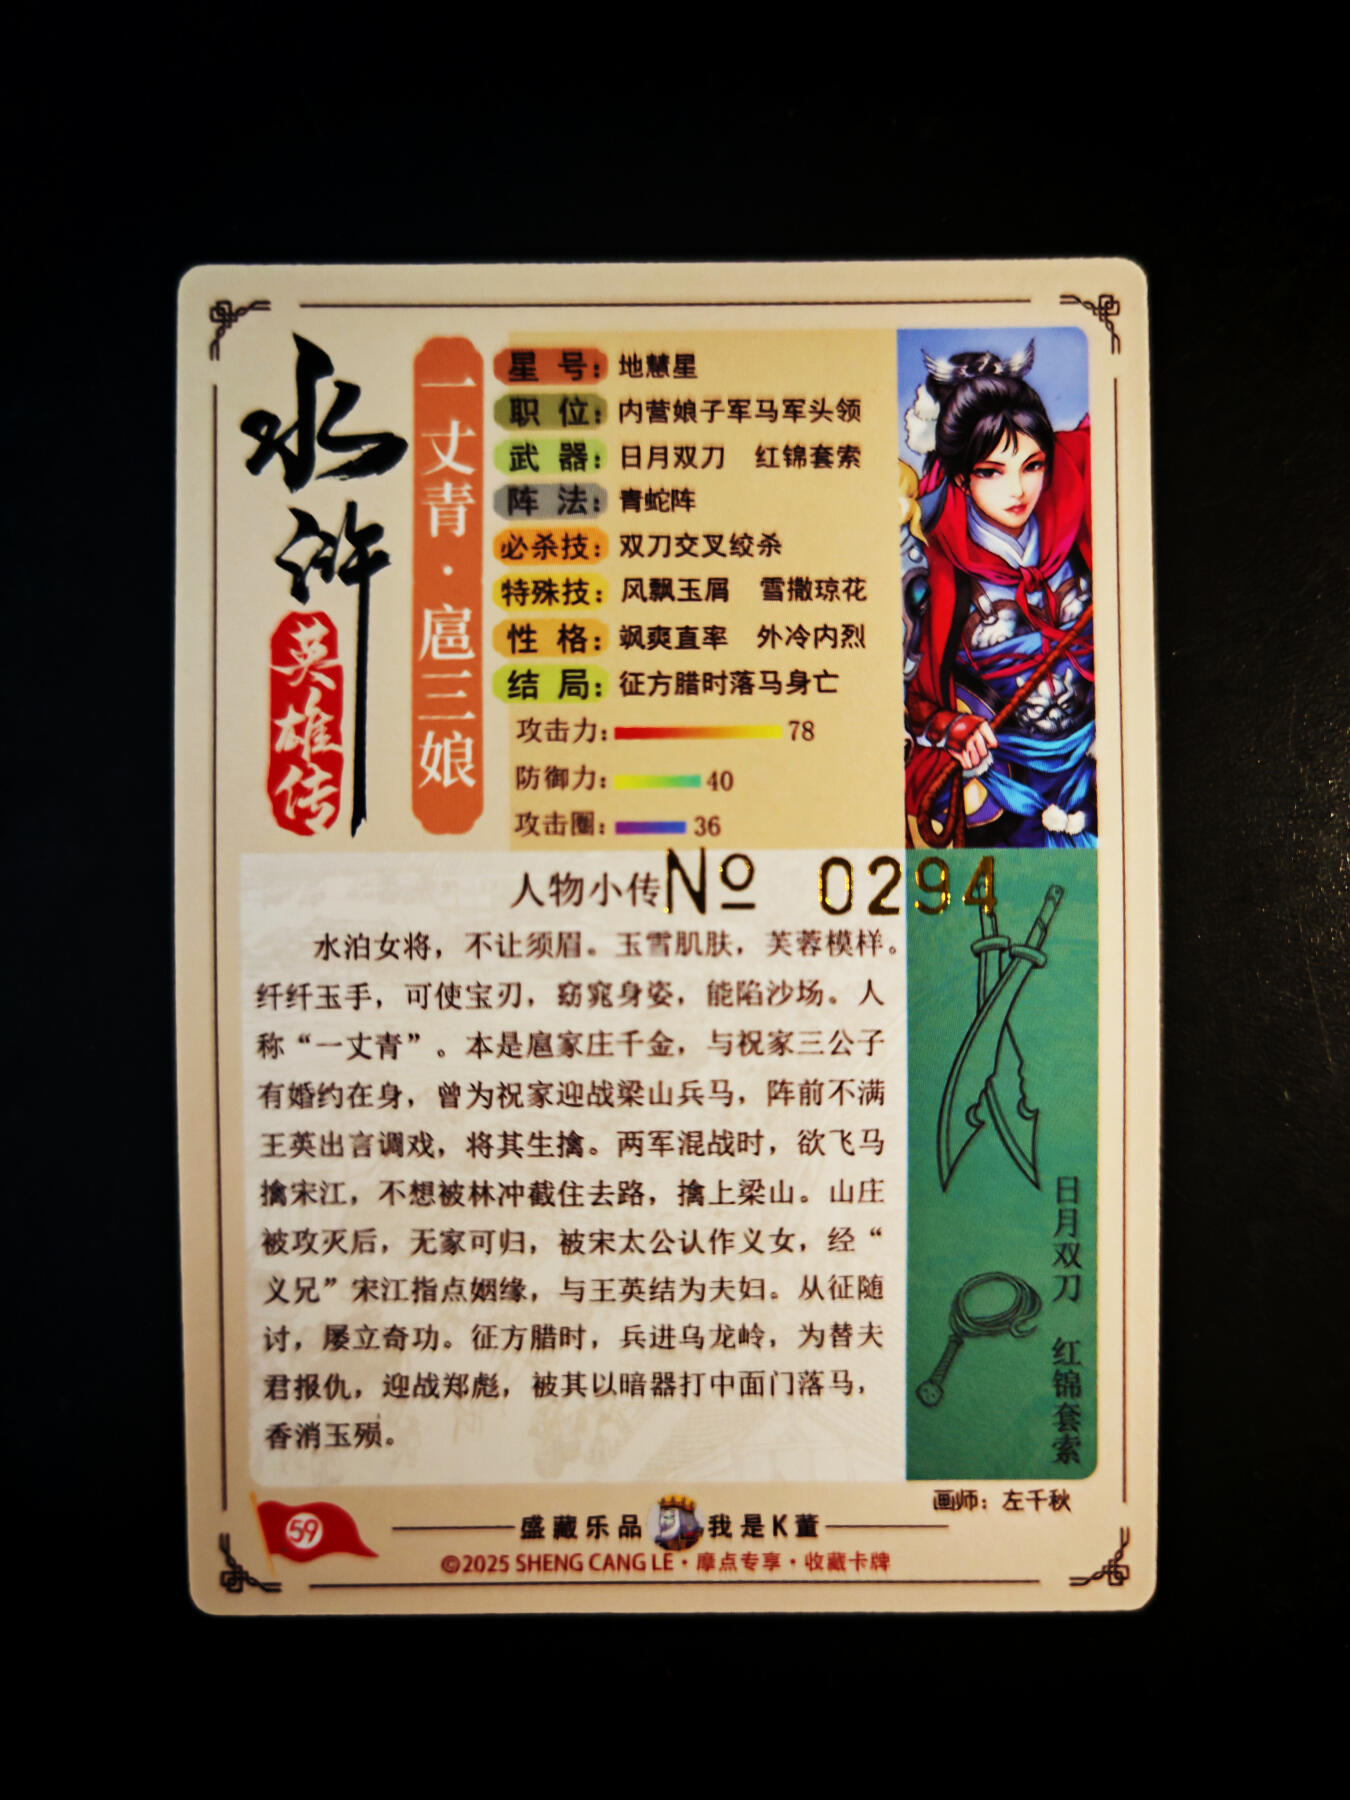 水浒
英雄传
一丈青·扈三娘
星号：地慧星
职位：内营娘子军马军头领
武器：日月双刀 红锦套索
阵法：青蛇阵
必杀技：双刀交叉绞杀
特殊技：风飘玉屑 雪撒琼花
性格：飒爽直率 外冷内烈
结局：征方腊时落马身亡
攻击力：78
防御力：40
攻击圈：36
人物小传
№ 0294
水泊女将，不让须眉。玉雪肌肤，芙蓉模样。
纤纤玉手，可使宝刃，窈窕身姿，能陷沙场。人
称“一丈青”。本是扈家庄千金，与祝家三公子
有婚约在身，曾为祝家迎战梁山兵马，阵前不满
王英出言调戏，将其生擒。两军混战时，欲飞马
擒宋江，不想被林冲截住去路，擒上梁山。山庄
被攻灭后，无家可归，被宋太公认作义女，经“
义兄”宋江指点姻缘，与王英结为夫妇。从征随
讨，屡立奇功。征方腊时，兵进乌龙岭，为替夫
君报仇，迎战郑彪，被其以暗器打中面门落马，
香消玉殒。
日月双刀 红锦套索
画师：左千秋
59
盛藏乐品 我是K董
©2025 SHENG CANG LE·摩点专享·收藏卡牌